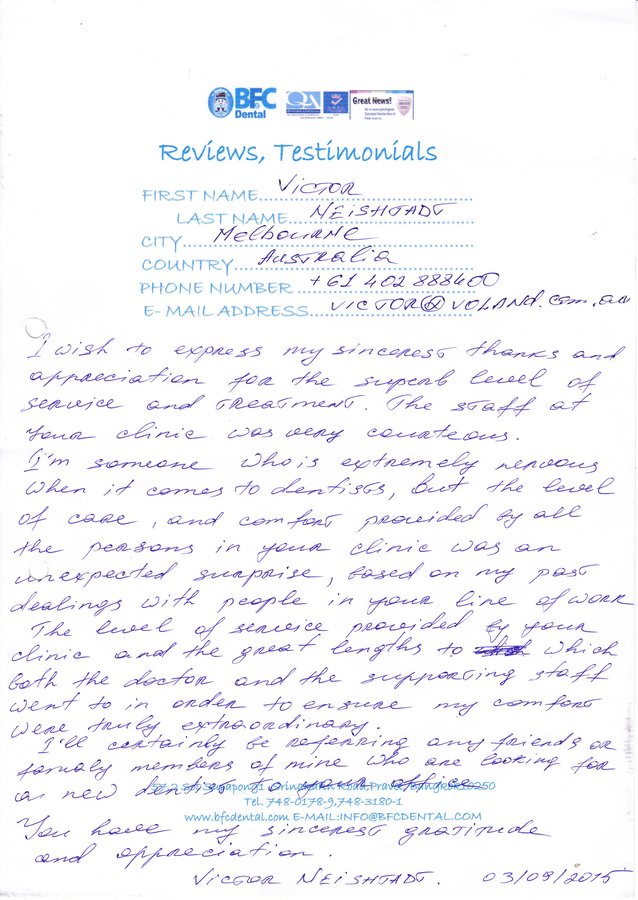 BFC
Dental
QA
INTERNATIONAL
UKAS
Great News!
Reviews, Testimonials
FIRST NAME...VICTOR
LAST NAME...NEISHTADT
CITY...Melbourne
COUNTRY...Australia
PHONE NUMBER...+61 402 888400
E-MAIL ADDRESS...VICTOR@VOLAND.com.au
I wish to express my sincerest thanks and
appreciation for the superb level of
service and TREATMENT. The staff at
your clinic was very courteous.
I'm someone who is extremely nervous
when it comes to dentists, but the level
of care, and comfort provided by all
the persons in your clinic was an
unexpected surprise, based on my past
dealings with people in your line of work
The level of service provided by your
clinic and the great lengths to which
both the doctor and the supporting staff
went to in order to ensure my comfort
were truly extraordinary.
I'll certainly be referring any friends or
family members of mine who are looking for
a new dentist to your office
10250
Tel. 748-0178-9,748-3180-1
www.bfcdental.com E-MAIL:INFO@BFCDENTAL.COM
You have my sincerest gratitude
and appreciation.
VICTOR NEISHTADT. 03/09/2015